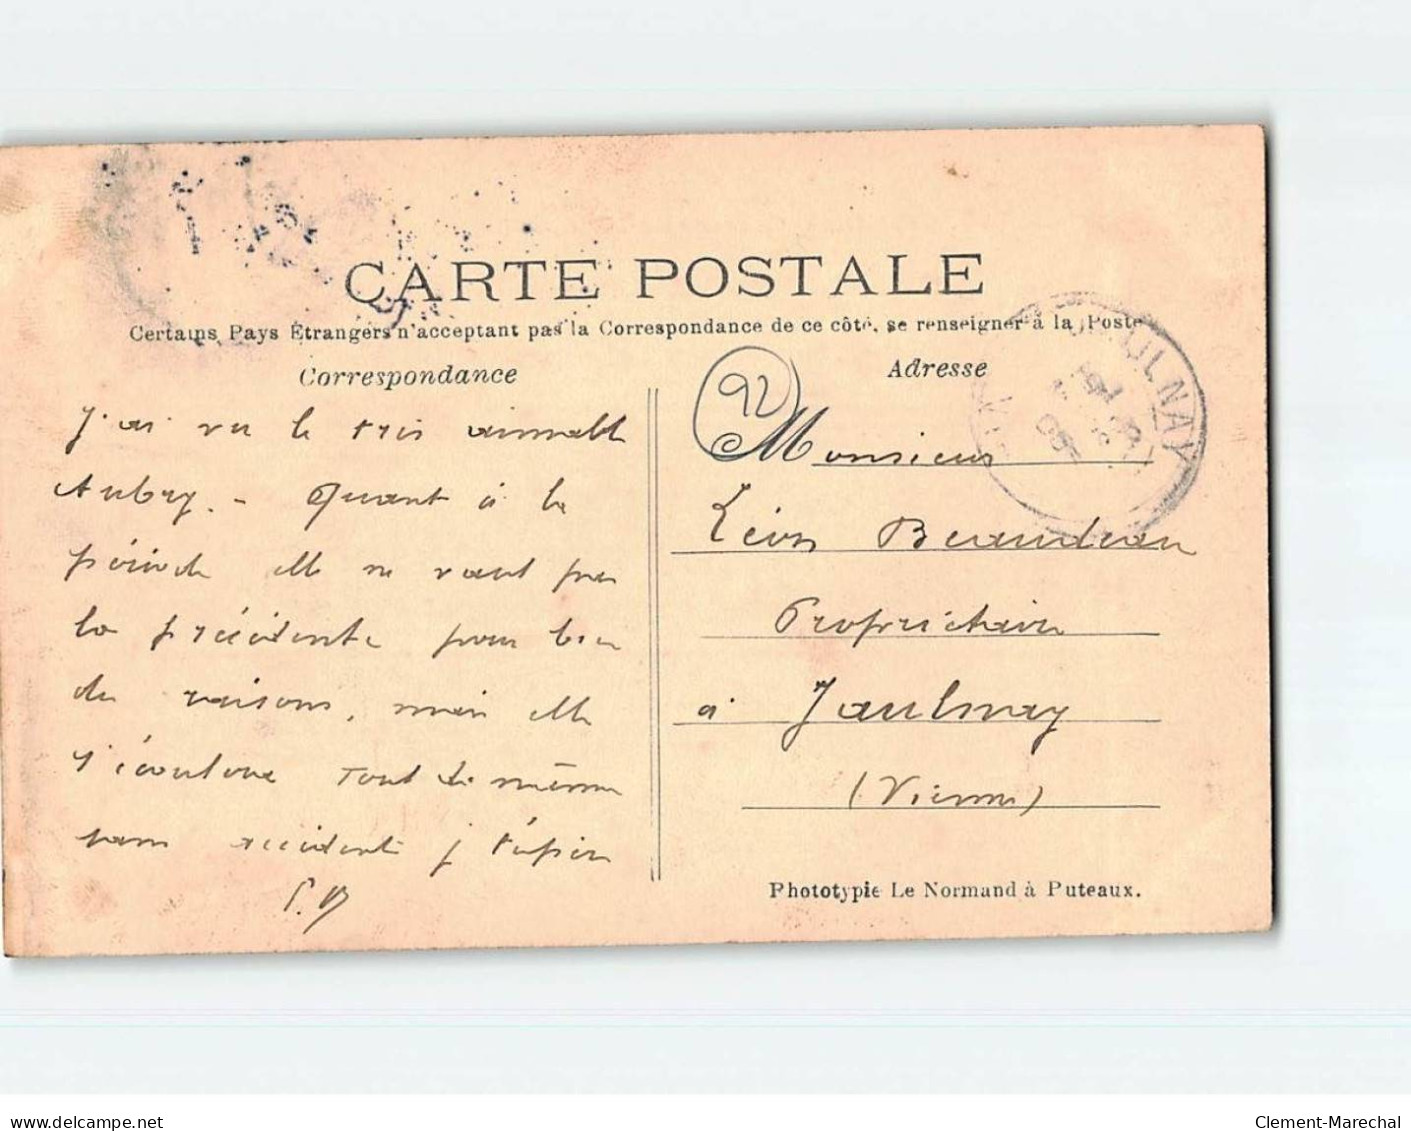 CARTE POSTALE
Certains Pays Étrangers n'acceptant pas la Correspondance de ce côté, se renseigner à la Poste
Correspondance
J'ai vu le très aimable
Aubry. - Quant à la
période elle ne vaut pas
la précédente pour bien
des raisons, mais elle
s'écoulera tout de même
sans accident j
P.B
Adresse
92
Monsieur
Léon Beaudeau
Propriétaire
à Jaulnay
(Vienne)
JAULNAY
Phototypie Le Normand à Puteaux.
www.delcampe.net
Clement-Marechal